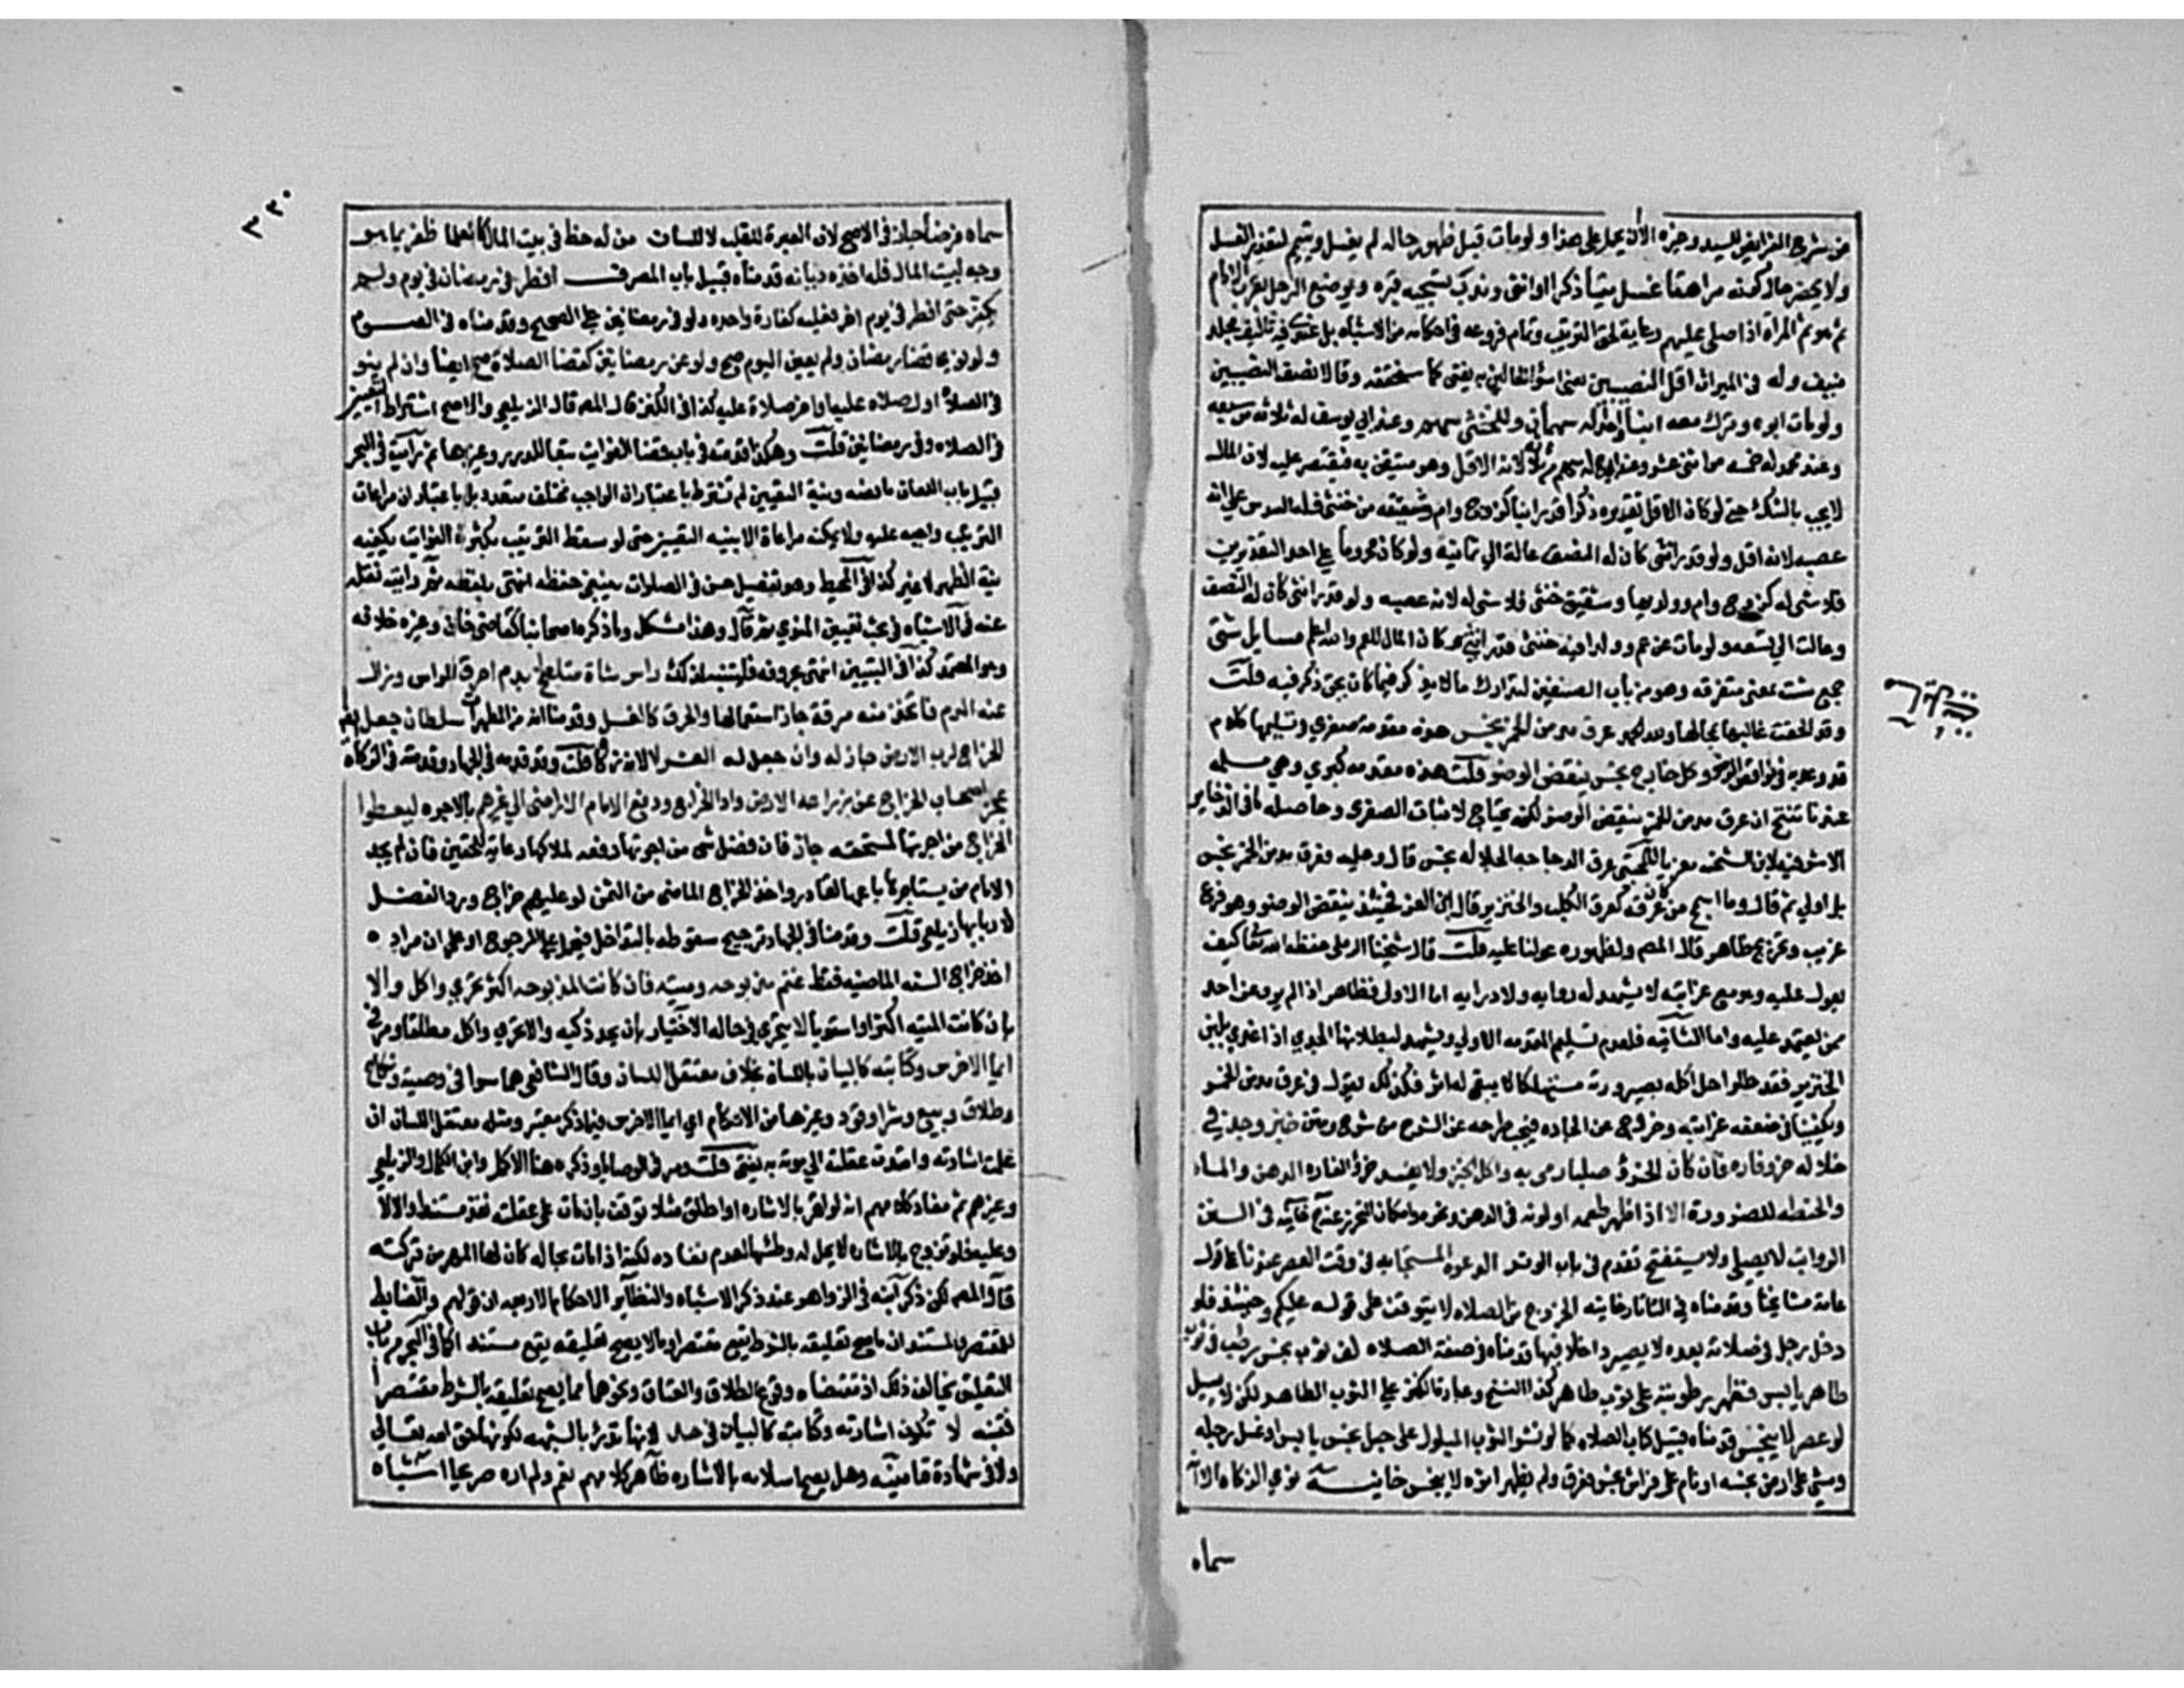 من شرح الفرايض للسيد وغيره الا ان يحمل على هذا ولو مات قبل ظهور حاله لم يغسل ويتيم لتعذر الغسل
ولا يحضر حال كونه مراهقا غسل ميتا ذكرا او انثى وندب تسجيه قبره ويوضع الرجل بقرب الامام
ثم هو ثم المراة اذا صلى عليهم رعاية لحق الترتيب وتمام فروعه في احكامه من الاشباه بل عندي فيه تاليف مجلد
منيف وله في الميراث اقل النصيبين يعني اسؤ الحالين به يفتى كما سنحققه وقالا نصف النصيبين
ولو مات ابوه وترك معه ابنا واحدا له سهمان وللخنثى سهم وعند ابي يوسف له ثلاثة من سبعه
وعند محمد له خمسه من اثنى عشر وعند ابي ح له سهم من ثلاثه لانه الاقل وهو متيقن به فيقتصر عليه لان المال
لا يجب بالشك حتى لو كان الاقل تقديره ذكرا قدر ابنا كزوج وام وشقيقه من خنثى فله السدس على انه
عصبه لانه اقل ولو قدر انثى كان له النصف عالة الي ثمانيه ولو كان محروما على احد التقديرين
فلا شي له كزوج وام وولديها وشقيق خنثى فلا شي له لانه عصبه ولو قدر انثى كان له النصف
وعالت الي تسعه ولو مات عن عم وولد اخيه خنثى قدر انثى كان المال للعم والله اعلم مسايل شتى
جمع شت بمعنى متفرقه وهو من باب المصنفين لتدارك ما لا يذكر فيما كان يحق ذكره فيه قلت
وقد الحقت غالبها بمحالها ولله الحمد عرق مدمن الخمر نجس هذه مقدمة صغرى وتسليمها كلام
قد وعد به في نواقض الوضو وكل خارج نجس ينقض الوضو قلت هذه مقدمه كبري وهي مسلمه
عندنا تنتج ان عرق مدمن الخمر ينقض الوضو لكنه يحتاج لاثبات الصغرى وحاصله ما في الذخاير
الاشرفيه لابن الشحنه معزيا للمجتبى عرق الدجاجه الجلاله نجس قال وعليه فعرق مدمن الخمر نجس
بل اولي ثم قال وما اسمج من كان عرقه كعرق الكلب والخنزير قال ابن العز فحينئذ ينقض الوضو وهو فرع
غريب وتخريج ظاهر قال المص ولظهوره عولنا عليه قلت قال شيخنا الرملي حفظه الله تعالى كيف
يعول عليه وهو مع غرابته لا يشهد له روايه ولا درايه اما الاولى فظاهر اذ لم يرو عن احد
ممن يعتمد عليه واما الثانيه فلعدم تسليم المقدمه الاولي ويشهد لبطلانها الجدي اذا غذي بلبن
الخنزير فقد عللوا حل اكله بصيرورته مستهلكا لا يبقى له اثر فكذلك نقول في عرق مدمن الخمر
ويكفينا في ضعفه غرابته وخروجه عن الجاده فيجب طرحه عن الشرح من شرح ومتن خبز وجد في
خلاله خرو فاره فان كان الخرؤ صلبا رمى به واكل الخبز ولا يفسد خرؤ الفاره الدهن والماء
والحنطه للضروره الا اذا ظهر طعمه او لونه في الدهن ونحوه لامكان التحرز عنه خانيه في السنن
الرواتب لا يصلي ولا يستفتح تقدم في باب الوتر الدعوة المستجابه في وقت العصر عندنا على قول
عامة مشايخنا وقدمناه في التاتارخانيه الخروج من الصلاه لا يتوقف على قوله عليكم وحينئذ فلو
دخل رجل في صلاته بعده لا يصير داخلا فيها قدمناه في صفة الصلاه لف ثوب نجس رطب في ثوب
طاهر يابس فظهر رطوبته على ثوب طاهر كذا النسخ وعبارة الكنز على الثوب الطاهر لكن لا يسيل
لو عصر لا يتنجس قدمناه قبيل كتاب الصلاه كما لو نشر الثوب المبلول على حبل نجس يابس او غسل رجله
ومشي على ارض نجسه او نام على فراش نجس فعرق ولم يظهر اثره لا ينجس خانيه نوي الزكاه الا ا
سماه
٣٢٠
سماه قرضا جاز في الاصح لان العبرة للقلب لا للسان من له حظ في بيت المال كالعلما ظفر بما هو
وجه لبيت المال فله اخذه ديانه قدمناه قبيل باب المصرف افطر في رمضان في يوم ولم
يكفر حتى افطر في يوم اخر فعليه كفارة واحده ولو في رمضانين على الصحيح وقدمناه في الصوم
ولو نوى قضا رمضان ولم يعين اليوم صح ولو عن رمضانين كقضا الصلاة صح ايضا وان لم ينو
في الصلاة اول صلاه عليه او اخر صلاة عليه كذا في الكنز قال المص قال الزيلعي والاصح اشتراط التعيين
في الصلاه وفي رمضانين قلت وهكذا قدمته في باب قضا الفوايت تبعا للدرر وغيرها ثم رايت في البحر
قبيل باب اللعان ما نصه ونية التعيين لم تشترط باعتبار ان الواجب مختلف متعدد بل باعتبار ان مراعات
الترتيب واجبه عليه ولا يمكنه مراعاة الا بنيه التعيين حتى لو سقط الترتيب بكثرة الفوايت يكفيه
نية الظهر لا غير كذا في المحيط وهو تفصيل حسن في الصلوات ينبغي حفظه انتهى بلفظه ثم رايته نقله
عنه في الاشباه في بحث تعيين المنوي ثم قال وهذا مشكل وما ذكره اصحابنا كقاضي خان وغيره خلافه
وهو المعتمد كذا في التبيين انتهى بحروفه فليتنبه لذلك راس شاة متلطخ بدم احرق الراس وزال
عنه الدم فاتخذ منه مرقة جاز استعمالها والحرق كالغسل وقدمنا انه من المطهرات سلطان جعل
الخراج لرب الارض جاز له وان جعل له العشر لا لانه زكاة قلت وقد قدمه في الجهاد وقدمته في الزكاة
عجز اصحاب الخراج عن زراعه الارض وادا الخراج ودفع الامام الاراضي الي غيرهم بالاجره ليعطوا
الخراج من اجرتها المستحقه جاز فان فضل شي من اجرتها دفعه لملاكها رعاية للحقين فان لم يجد
الامام من يستاجرها باعها لقادر واخذ الخراج الماضي من الثمن لو عليهم خراج ورد الفضل
لاربابها زيلعي قلت وقدمنا في الجهاد ترجيح سقوطه بالتداخل فيحمل على المرجوح او على ان مراده
اخذ خراج السنه الماضيه فقط غنم مذبوحه وميته فان كانت المذبوحه اكثر تحرى واكل والا
بان كانت الميته اكثر او استويا لا يتحرى في حاله الاختيار بان يجد ذكيه والا تحرى واكل مطلقا ومر في
ايما الاخرس وكتابته كالبيان باللسان بخلاف معتقل اللسان وقال الشافعي هما سوا في وصية ونكاح
وطلاق وبيع وشرا وقود وغيرها من الاحكام اي ايما الاخرس فيما ذكر معتبر ومثله معتقل اللسان ان
علمت اشارته وامتدت عقلته الي موته به يفتى قلت ومر في الوصايا وذكره هنا الاكمل وابن الكمال والزيلعي
وغيرهم ثم مفاد كلامهم انه لو اقر بالاشاره او طلق مثلا توقف فان مات على عقلته نفذ مستندا والا لا
وعليه فلو تزوج بالاشاره لا يحل له وطئها لعدم نفاده لكنه اذا مات بحاله كان لها المهر من تركته
قال المص لكن ذكر ابنه في الزواهر عند ذكر الاشباه والنظاير الاحكام الاربعه ان قولهم والضابط
للمقتصر والمستند ان ما صح تعليقه بالشرط يقع مقتصرا وما لا يصح تعليقه يقع مستندا كما في البحر من باب
التعليق يخالف ذلك اذ مقتضاه وقوع الطلاق والعتاق ونحوهما مما يصح تعليقه بالشرط مقتصرا
فتنبه لا تكون اشارته وكتابته كالبيان في حد لانها تدرا بالشبهه لكونها حق الله تعالي
ولا في شهادة قامنيه وهل يصح اسلامه بالاشاره ظاهر كلامهم نعم ولم اره صريحا اشباه